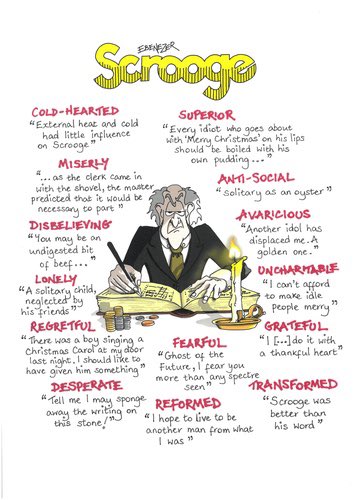 EBENEZER
Scrooge
COLD-HEARTED
"External heat and cold
had little influence
on Scrooge"
MISERLY
"...as the clerk came in
with the shovel, the master
predicted that it would be
necessary to part"
DISBELIEVING
"You may be an
undigested bit
of beef..."
LONELY
"A solitary child,
neglected by
his friends"
REGRETFUL
"There was a boy singing a
Christmas Carol at my door
last night. I should like to
have given him something"
DESPERATE
"Tell me I may sponge
away the writing on
this stone!"
SUPERIOR
"Every idiot who goes about
with 'Merry Christmas' on his lips
should be boiled with his
own pudding..."
ANTI-SOCIAL
"Solitary as an oyster"
AVARICIOUS
"Another idol has
displaced me. A
golden one."
UNCHARITABLE
"I can't afford
to make idle
people merry"
FEARFUL
"Ghost of the
Future, I fear you
more than any spectre
seen"
GRATEFUL
"I [...] do it with
a thankful heart"
REFORMED
"I hope to live to be
another man from what
I was"
TRANSFORMED
"Scrooge was
better than
his word"